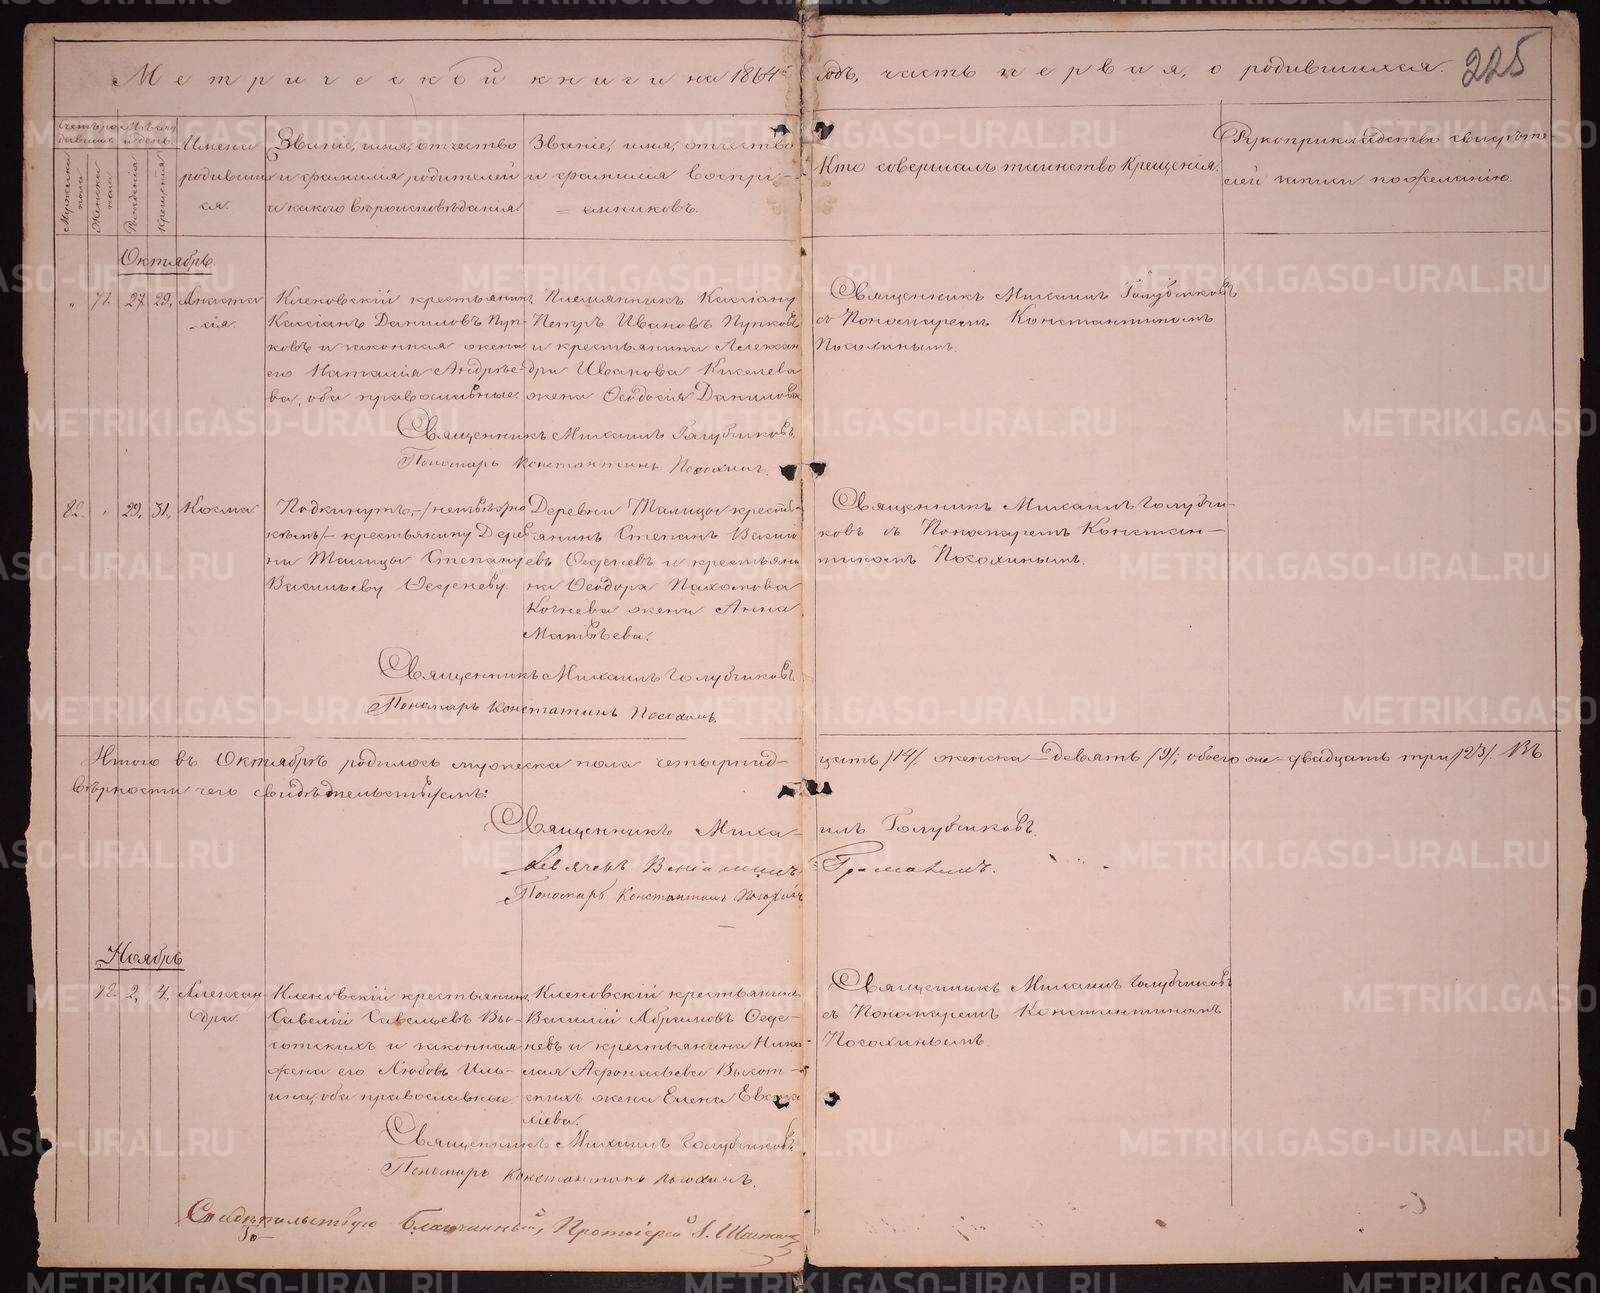 Метрической книги на 1864й годъ, часть первая, о родившихся.
225
Счетъ родившихся
Мѣсяцъ и день
Мужеска пола
Женска пола
Рожденія
Крещенія
Имена родившихся.
Званіе, имя, отчество
и фамилія родителей
и какого вѣроисповѣданія
Званіе, имя, отчество
и фамилія воспрі-
=емниковъ.
Кто совершалъ таинство Крещенія.
Рукоприкладство свидѣте-
лей записи по желанію.
Октябрь.
" 71. 27. 29. Анаста
=сія.
Кленовскій крестьянинъ
Кассіанъ Даниловъ Пуп-
ковъ и законная жена
его Наталія Андрѣе-
ва, оба православные.
Племянникъ Кассіану
Петръ Ивановъ Пупковъ
и крестьянина Алексан
дра Иванова Киселева
жена Ѳеодосія Данилова
Священникъ Михаилъ Голубчиковъ
съ Пономаремъ Константиномъ
Посохинымъ.
Священникъ Михаилъ Голубчиковъ.
Пономарь Константинъ Посохинъ.
82. " 29. 31. Косма
Подкинутъ,-/неизвѣстно
кѣмъ/- крестьянину Дерев
ни Талицы Степану
Васильеву
Деревни Талицы кресть
янинъ Степанъ Васильевъ
и крестьяни
на Ѳеодора Пахомова
Кочнева жена Анна
Матвѣева.
Священникъ Михаилъ Голубчи-
ковъ съ Пономаремъ Констан-
тиномъ Посохинымъ.
Священникъ Михаилъ Голубчиковъ
Пономарь Констатинъ Посохинъ
Итого въ Октябрѣ родилось мужеска пола четырнад-
цать /14/. женска - девять /9/; обоего же - двадцать три /23/. Въ
вѣрности чего свидѣтельствуемъ:
Священникъ Михаилъ Голубчиковъ.
Веніаминъ
Пономарь Константинъ Посохинъ
Ноябрь
72. 2. 4. Алексан-
дра.
Кленовскій крестьянинъ
Савелій Савельевъ Вы-
сотскихъ и законная
жена его Любовь Иль-
ина, оба православные.
Кленовскій крестьянинъ
Василій
и крестьянина Нико-
лая Аѳонасьева Высот-
скихъ жена Елена
Священникъ Михаилъ Голубчиковъ
съ Пономаремъ Константиномъ
Посохинымъ
Священникъ Михаилъ Голубчиковъ
Пономарь Константинъ Посохинъ.
Свидѣтельствую Благочинный, Протоіерей
METRIKI.GASO-URAL.RU